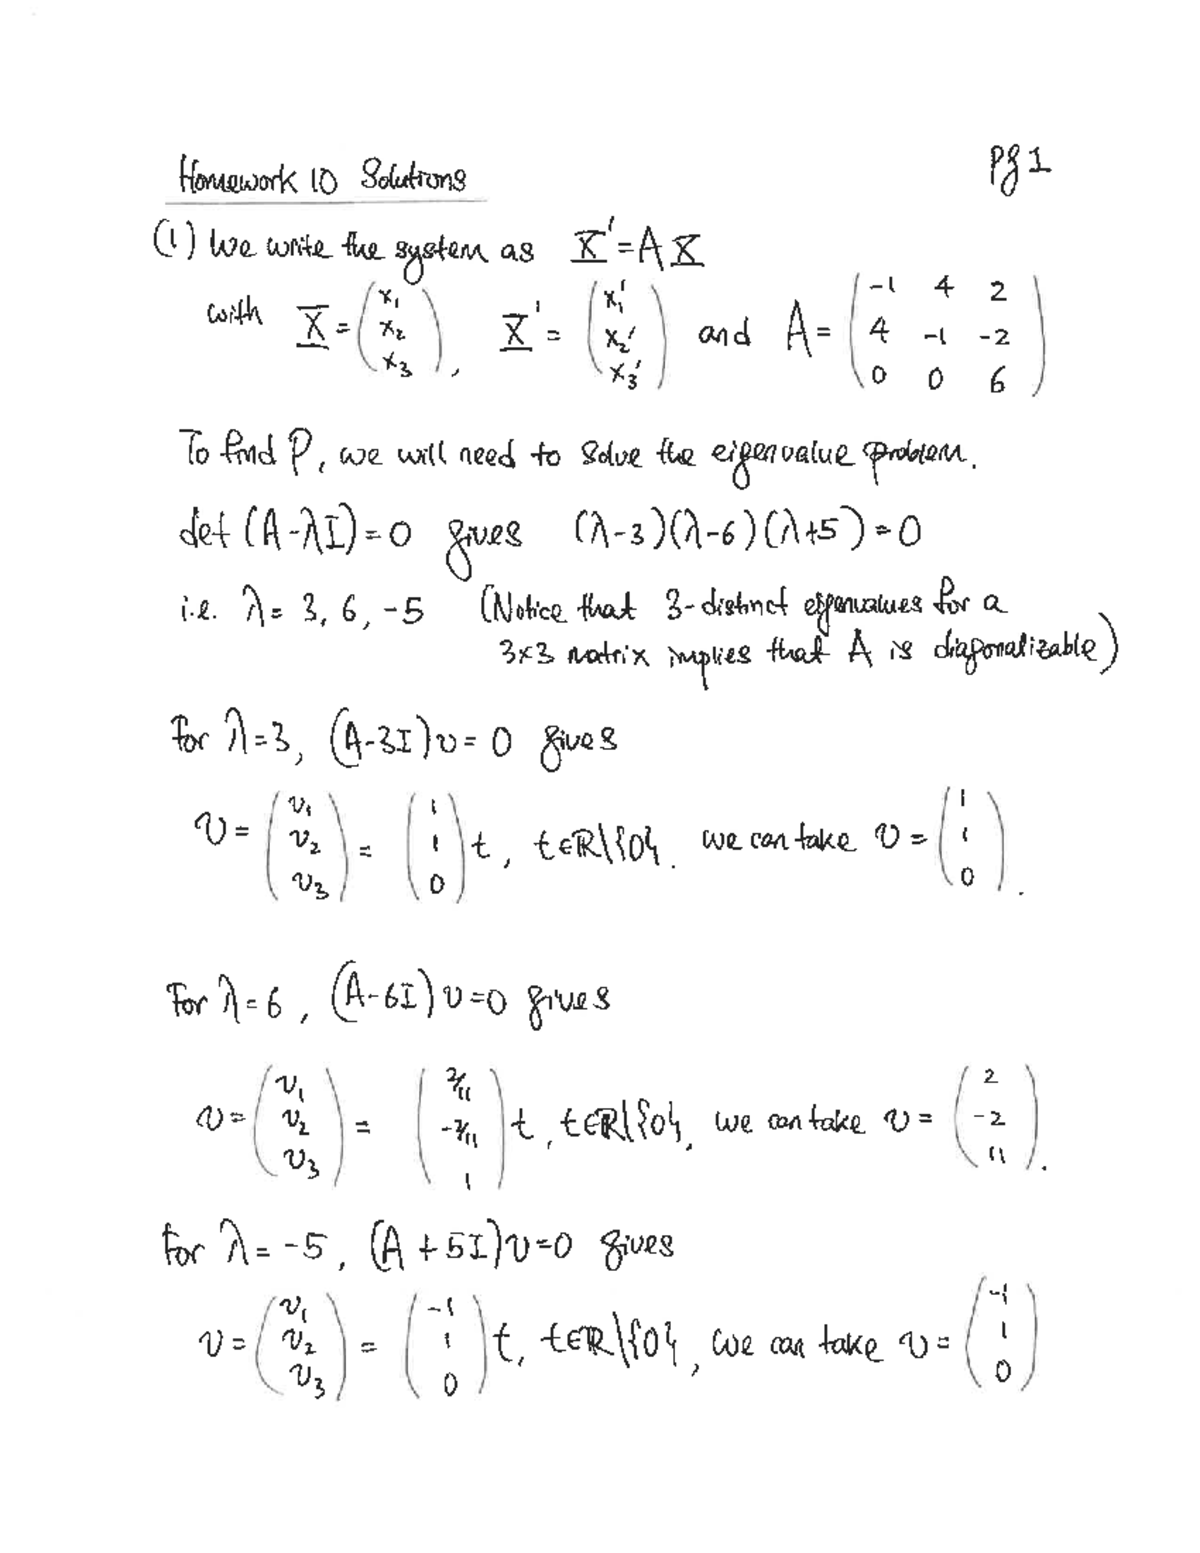 Homework 10 Solutions
Pg 1
(1) We write the system as X' = A X
with X = (x₁ x₂ x₃), X' = (x₁' x₂' x₃') and A = (-1 4 2; 4 -1 -2; 0 0 6)
To find P, we will need to solve the eigenvalue problem.
det (A-λI) = 0 gives (λ-3)(λ-6)(λ+5) = 0
i.e. λ = 3, 6, -5 (Notice that 3-distinct eigenvalues for a
3×3 matrix implies that A is diagonalizable)
For λ=3, (A-3I)v = 0 gives
v = (v₁ v₂ v₃) = (1 1 0) t, t∈ℝ\{0}. we can take v = (1 1 0).
For λ=6, (A-6I)v=0 gives
v = (v₁ v₂ v₃) = (2/11 -2/11 1) t, t∈ℝ\{0}, we can take v = (2 -2 11).
For λ = -5, (A+5I)v=0 gives
v = (v₁ v₂ v₃) = (-1 1 0) t, t∈ℝ\{0}, we can take v = (-1 1 0)